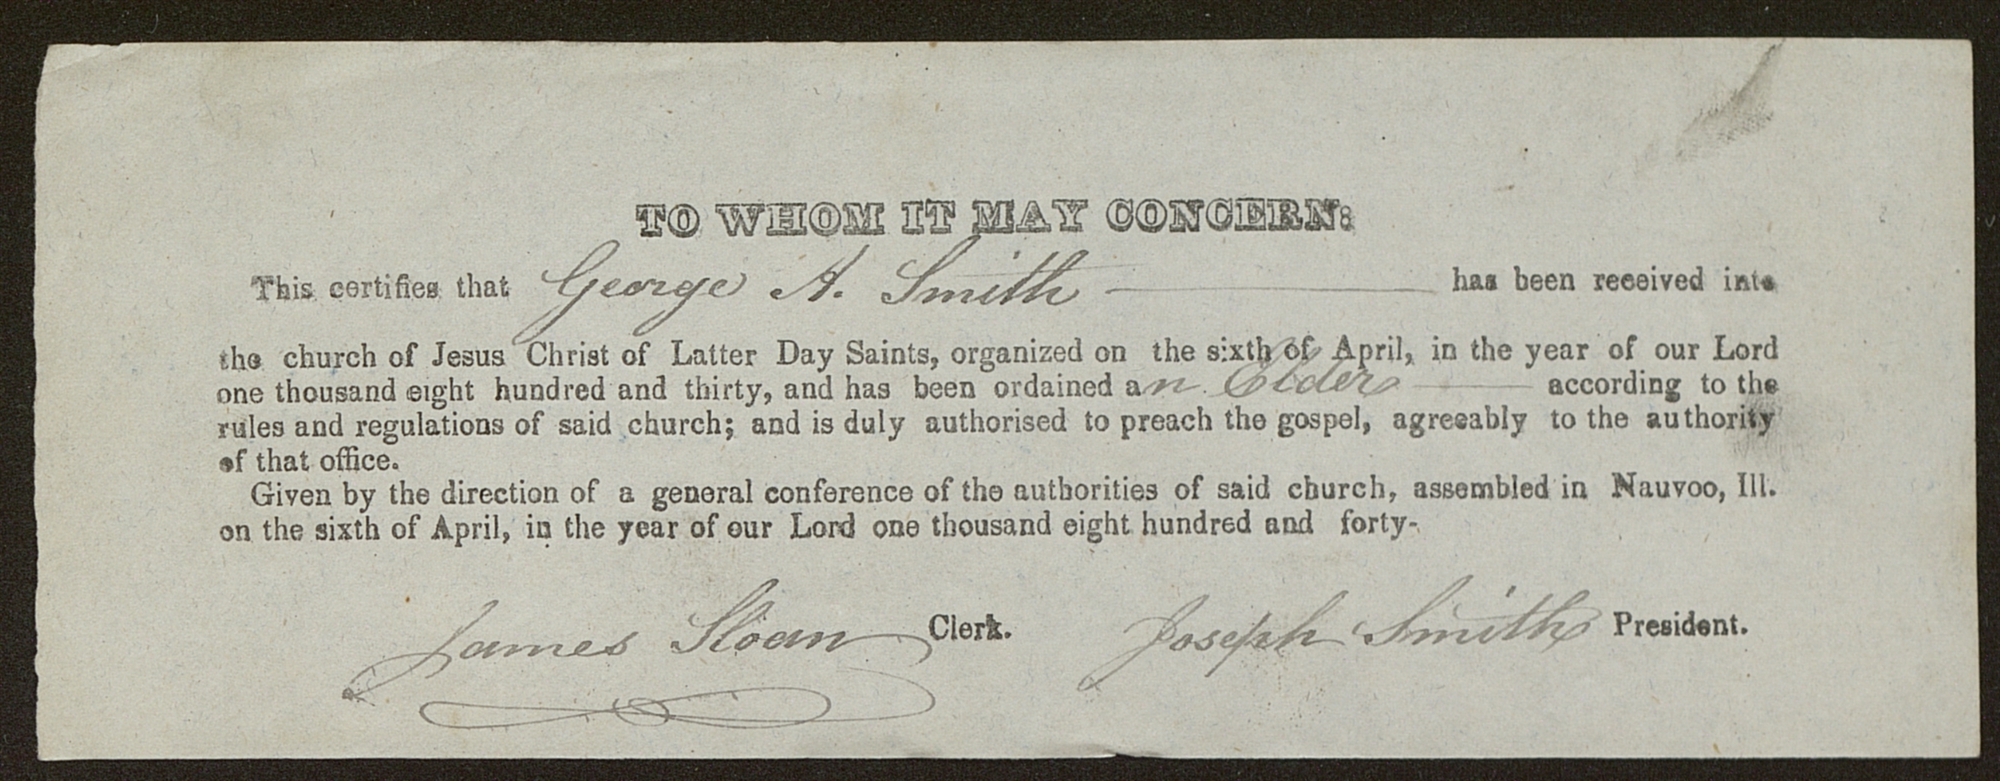 TO WHOM IT MAY CONCERN:
This certifies that George A. Smith has been received into
the church of Jesus Christ of Latter Day Saints, organized on the sixth of April, in the year of our Lord
one thousand eight hundred and thirty, and has been ordained an Elder according to the
rules and regulations of said church; and is duly authorised to preach the gospel, agreeably to the authority
of that office.
Given by the direction of a general conference of the authorities of said church, assembled in Nauvoo, Ill.
on the sixth of April, in the year of our Lord one thousand eight hundred and forty-
James Sloan Clerk. Joseph Smith President.